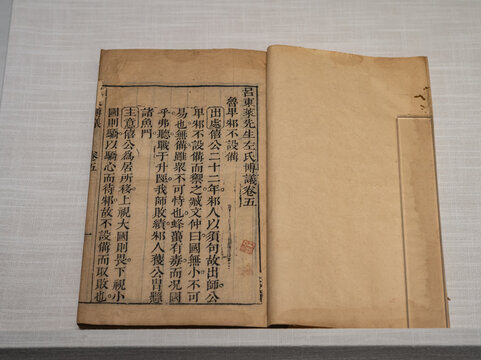 呂東萊先生左氏博議卷五
魯卑邾不設備
出處僖公二十二年邾人以須句故出師公
卑邾不設備而禦之臧文仲曰國無小不可
易也無備雖衆不可恃也蜂蠆有毒而况國
乎弗聽戰于升陘我師敗績邾人獲公冑縣
諸魚門
主意僖公為居所移上視大國則畏下視小
國則驕以驕心而待邾故不設備而取敗也
卷五